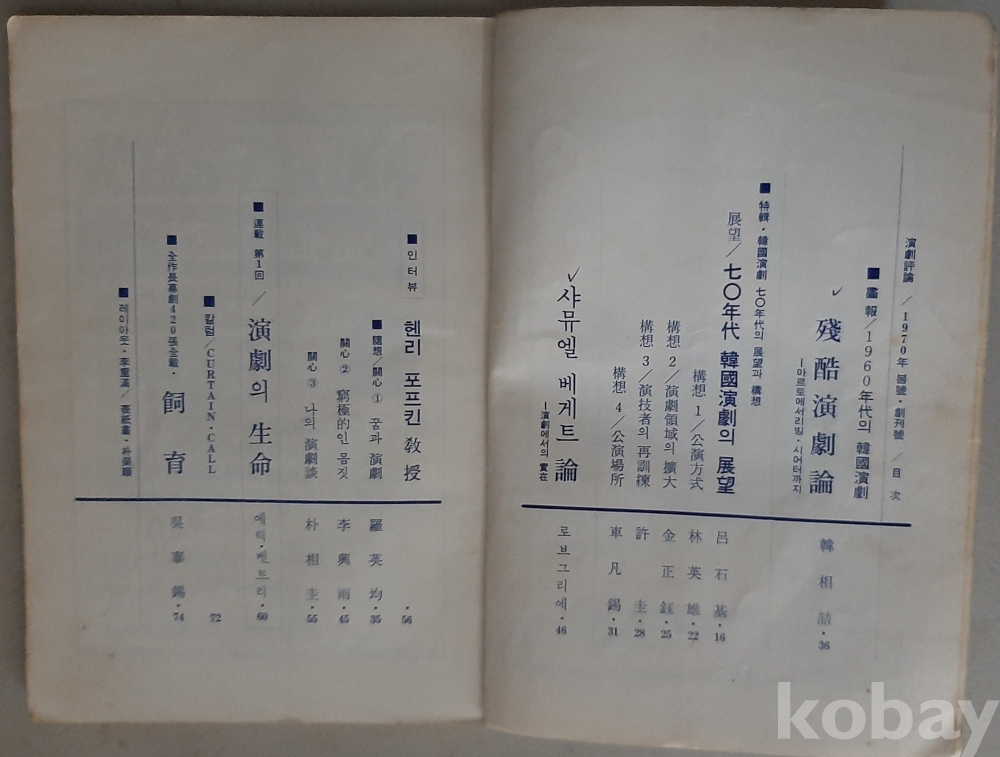 演劇評論 / 1970年 봄號·創刊號 / 目次
■ 畵報/1960年代의 韓國演劇
殘酷演劇論 韓相喆·36
─아르토에서리빙·시어터까지
■ 特輯·韓國演劇 七〇年代의 展望과 構想
展望/七〇年代 韓國演劇의 展望 呂石基·16
構想 1/公演方式 林英雄·22
構想 2/演劇領域의 擴大 金正鈺·25
構想 3/演技者의 再訓練 許圭·28
構想 4/公演場所 車凡錫·31
샤뮤엘 베게트 論 로브그리예·46
─演劇에서의 實在
■ 인터뷰 헨리 포프킨 敎授 ·56
■ 隨想/關心 ① 꿈과 演劇 羅英均·35
關心 ② 窮極的인 몸짓 李興雨·45
關心 ③ 나의 演劇談 朴相圭·55
■ 連載 第1回 / 演劇의 生命 에릭·벤트리·60
■ 칼럼/CURTAIN·CALL 72
■ 全作長幕劇420張全載· 飼育 吳泰錫·74
■ 레이아웃·李重漢/表紙畵·朴榮順
kobay